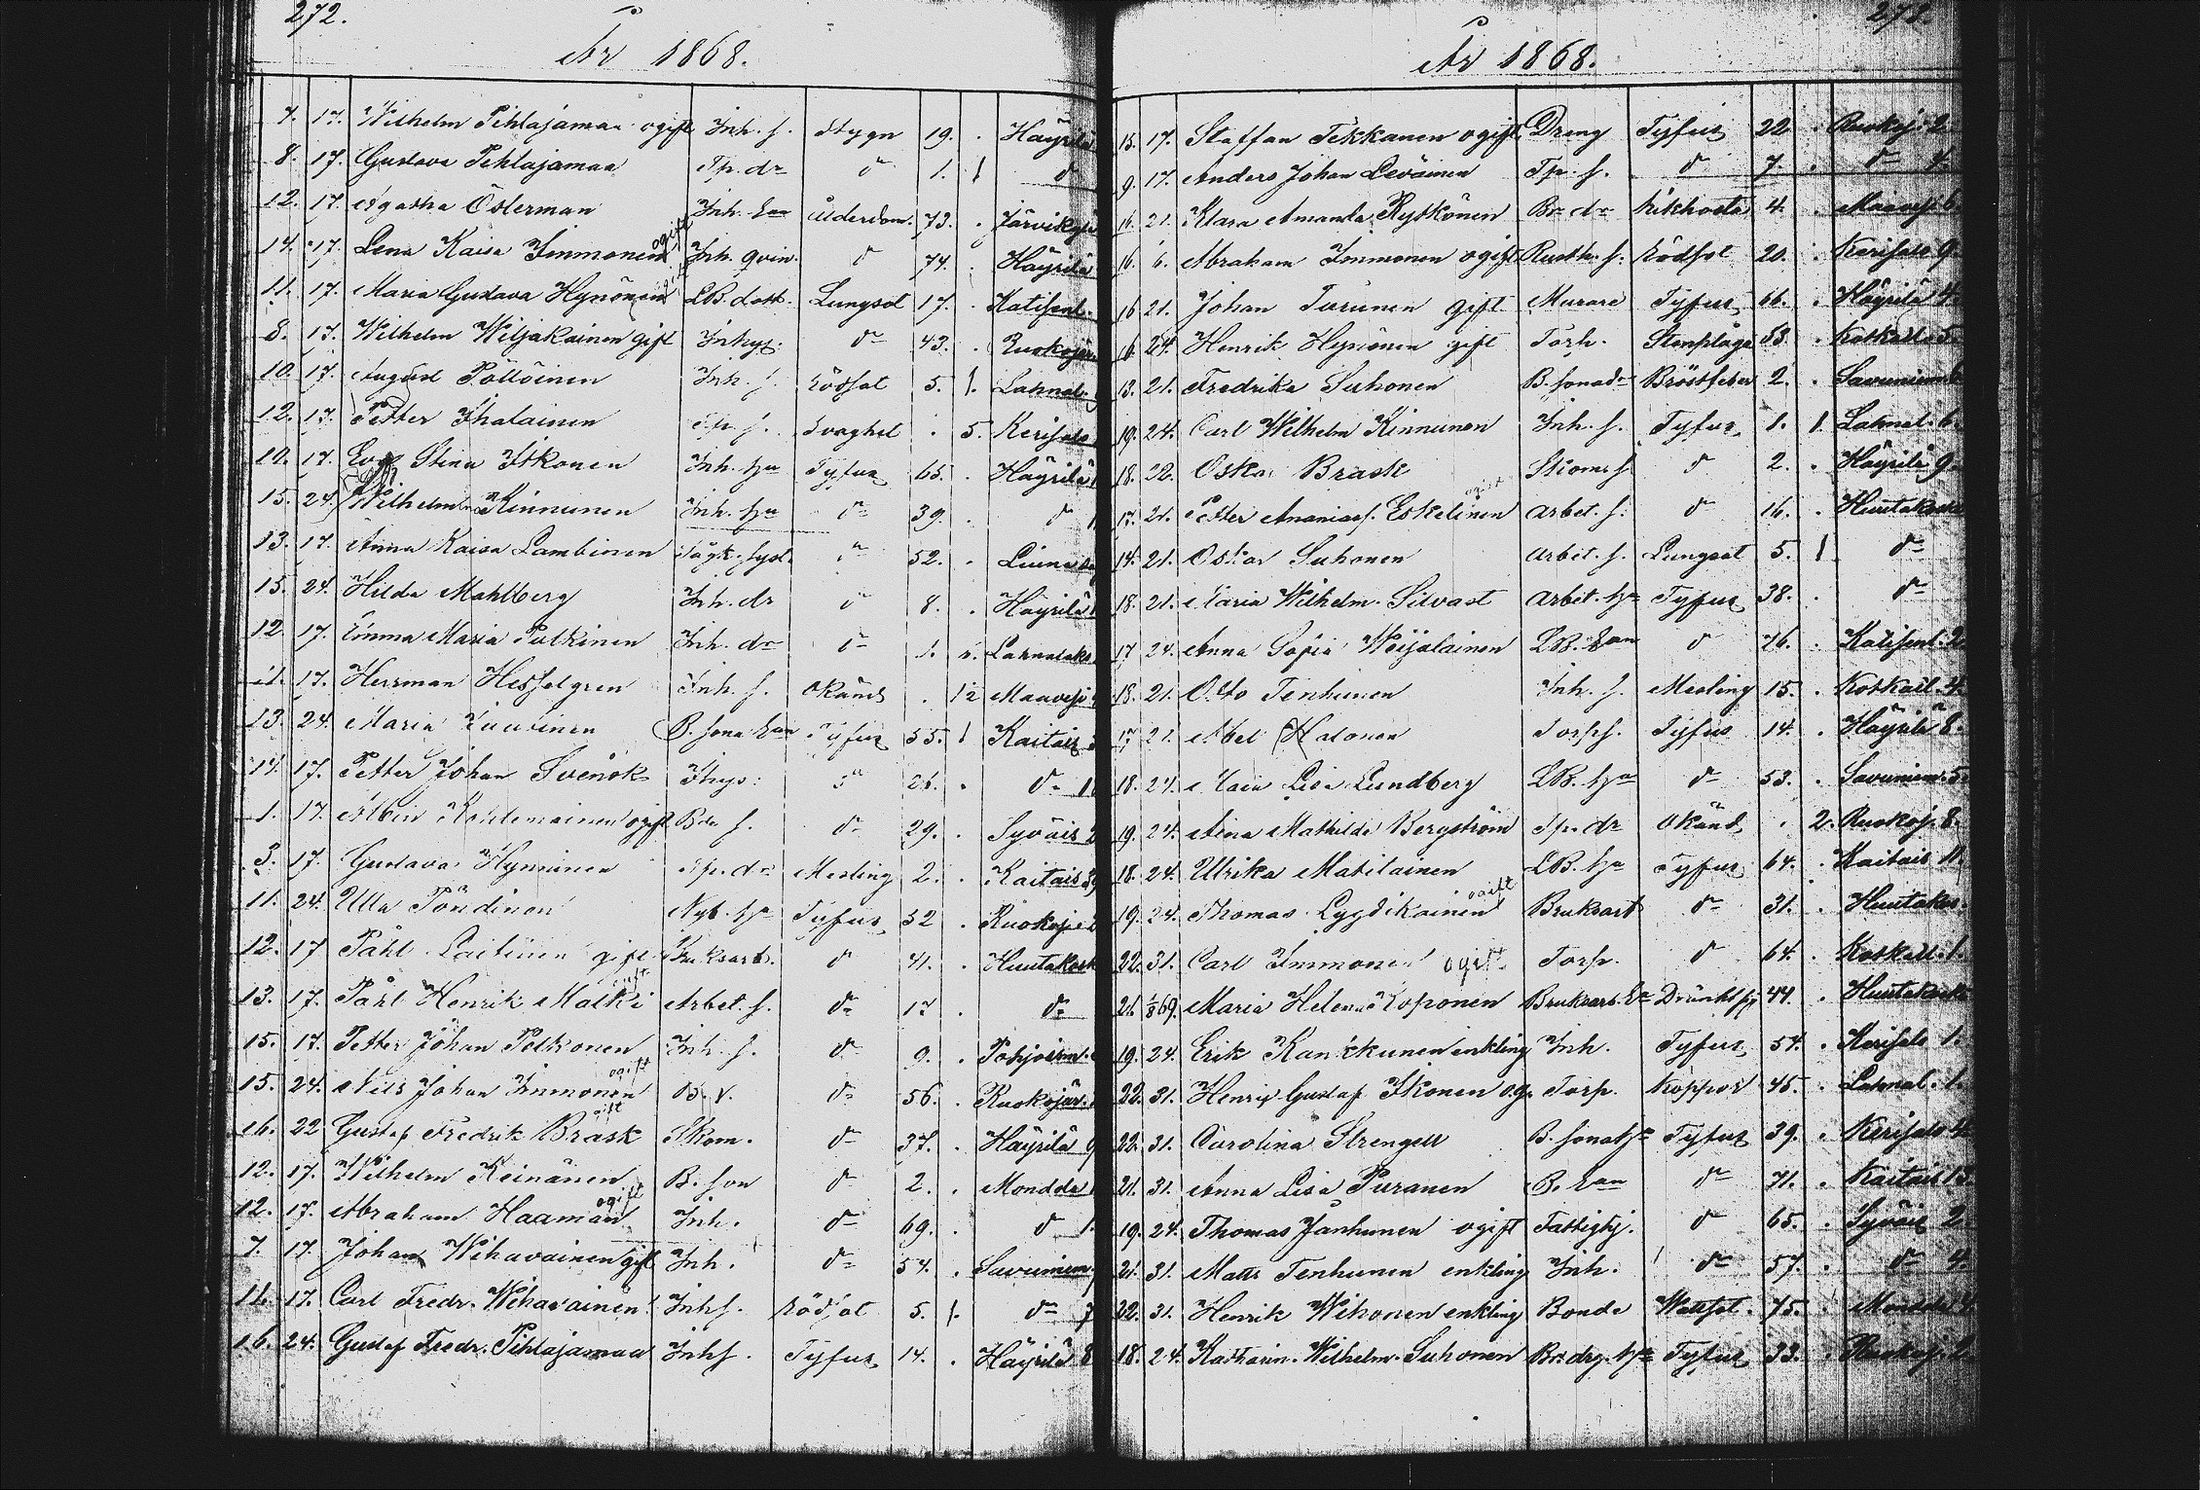 272.
År 1868.
7. 17. Wilhelm Pihlajamaa ogift Inh. s. Stygn 19. . Häyrilä
8. 17. Gustava Pihlajamaa Tp. dr d:o 1. 1 d:o
12. 17. Agatha Österman Inh. Enk ålderdom. 73. . Järvikylä
14. 17. Lena Kaisa Immonen ogift Inh. qvin. d:o 74. . Häyrilä
11. 17. Maria Gustava Hynönen LB. dott. Lungsot 17. . Katisenl.
8. 17. Wilhelm Wiljakainen gift Inhys. d:o 43. . Ruokojär
10. 17. August Pöllöinen Inh. s. Rödsot 5. 1. Lahnal.
12. 17. Petter Ihalainen Tp. s. Svaghet . 5. Kerisalo
10. 17. Eva Stina Itkonen Inh. hu Tyfus 65. . Häyrilä
15. 24. Wilhelm. Kinnunen Inh. hu d:o 39. . d:o
13. 17. Anna Kaisa Lambinen d:o 52. .
15. 24. Hilda Mahlberg Inh. dr d:o 8. . Häyrilä
12. 17. Emma Maria Putkinen Inh. dr d:o 1. Lahnalaks
11. 17. Herrman Hesselgren Inh. s. Okänd . 12 Maavesi
13. 24. Maria Luukinen B. sons Enk Tyfus 55. 1 Kaitais
14. 17. Petter Johan Svensk Ihys: d:o 26. . d:o
1. 17. Albin ogift Bde s. d:o 29. . Syväis 2
3. 17. Gustava Hynninen Tp. dr Mesling 2. . Kaitais
11. 24. Ulla Pöndinen Nyb. hu Tyfus 52 . Ruokoj
12. 17 Påhl Laitinen gift Bruksarb. d:o 41. . Huutokosk
13. 17. Pähl Henrik Malki Arbet. s. d:o 17 . d:o
15. 17. Petter Johan Pelkonen Inh. s. d:o 9. . Pohjoism.
15. 24. Nils Johan Immonen ogift d:o 56. . Ruokojär.
16. 22 Gustaf Fredrik Brask gift Skom. d:o 37. . Häyrilä 9
12. 17. Wilhelm Keinänen B. son d:o 2. . Mondola
12. 17. Abraham Haaman ogift Inh. d:o 69. . d:o 1.
7. 17. Johan Wihavainen gift Inh. d:o 54. . Savuniem.
11. 17. Carl Fredr. Wihavainen Inhs. Rödsot 5. 1. d:o 7
16. 24. Gustaf Fredr. Pihlajamaa Inhs. Tyfus 14. . Häyrilä 8
273.
År 1868.
15. 17. Staffan Tekkanen ogift Dreng Tyfus 22 . Ruokoj. 2.
9. 17. Anders Johan Leväinen Tp. s. d:o 7. . d:o 4.
16. 21. Klara Amanda Rytkönen Be dr Kikhosta 4. . Maavesi 6.
16. 6. Abraham Immonen ogift Rusth. s. Rödsot 20. . Kerisalo 9.
16 21. Johan Turunen gift Murare Tyfus 66. . Häyrilä 4.
16. 24. Henrik Hynönen gift Torp. Stenplåga 53. . Kotkatl. 5.
13. 21. Fredrika Suhonen B. sonadr Bröstfeber 2. . Savuniem
19. 24. Carl Wilhelm Kinnunen Inh. s. Tyfus 1. 1. Lahnal. 6.
18. 22. Oskar Brask Skoms s. d:o 2. . Häyrilä 9.
17. 21. Petter Ananias s. Eskelinen ogift Arbet. s. d:o 16. . Huutokosk
14. 21. Oskar Suhonen Arbet. s. Lungsot 5. 1 d:o
18. 21. Maria Wilhelm. Silvast Arbet. hu Tyfus 38. . d:o
17 24. Anna Sofia Weijalainen LB. Enk d:o 76. . Katisenl. 2
18. 21. Otto Tenhunen Inh. s. Mesling 15. . Kotkatl. 4.
17 21. Abel Halonen Torp s. Tyfus 14. . Häyrilä 8.
18. 24. Maria Lisa Lundberg LB. hu d:o 53. . Savuniem. 5.
19. 24. Aina Mathilda Bergström Tp. dr Okänd . 2. Ruokoj. 8.
18. 24. Ulrika Matilainen LB. hu Tyfus 64. . Kaitais 11.
19. 24. Thomas Lyydikainen ogift Bruksarb d:o 31. . Huutokos.
22. 31. Carl Immonen ogift Torp. d:o 64. . Kotkatl. 1.
21. 1/8 69. Maria Helena Toponen Bruksarb. En 44. . Huutokosk
19. 24. Erik Kankkunen enkling Inh. Tyfus 54. . Kerisalo 1.
22. 31. Henrik Gustaf Itkonen og. Torp. Koppor 45. . Lahnal. 1.
22. 31. Carolina Strengell B. sons hu Tyfus 39. . Kerisalo 4.
21. 31. Anna Lisa Puranen B. Enk d:o 71. . Kaitais 13.
19. 24. Thomas Janhunen ogift Fattighj. d:o 65. . Syväis 2.
21. 31. Matts Tenhunen enkling Inh. d:o 57. . d:o 4.
22. 31. Henrik Wihonen enkling Bonde Wattsot. 75. . Mondola 4.
18. 24. Katharin. Wilhelm. Suhonen Tyfus 33. . Ruokoj. 2.